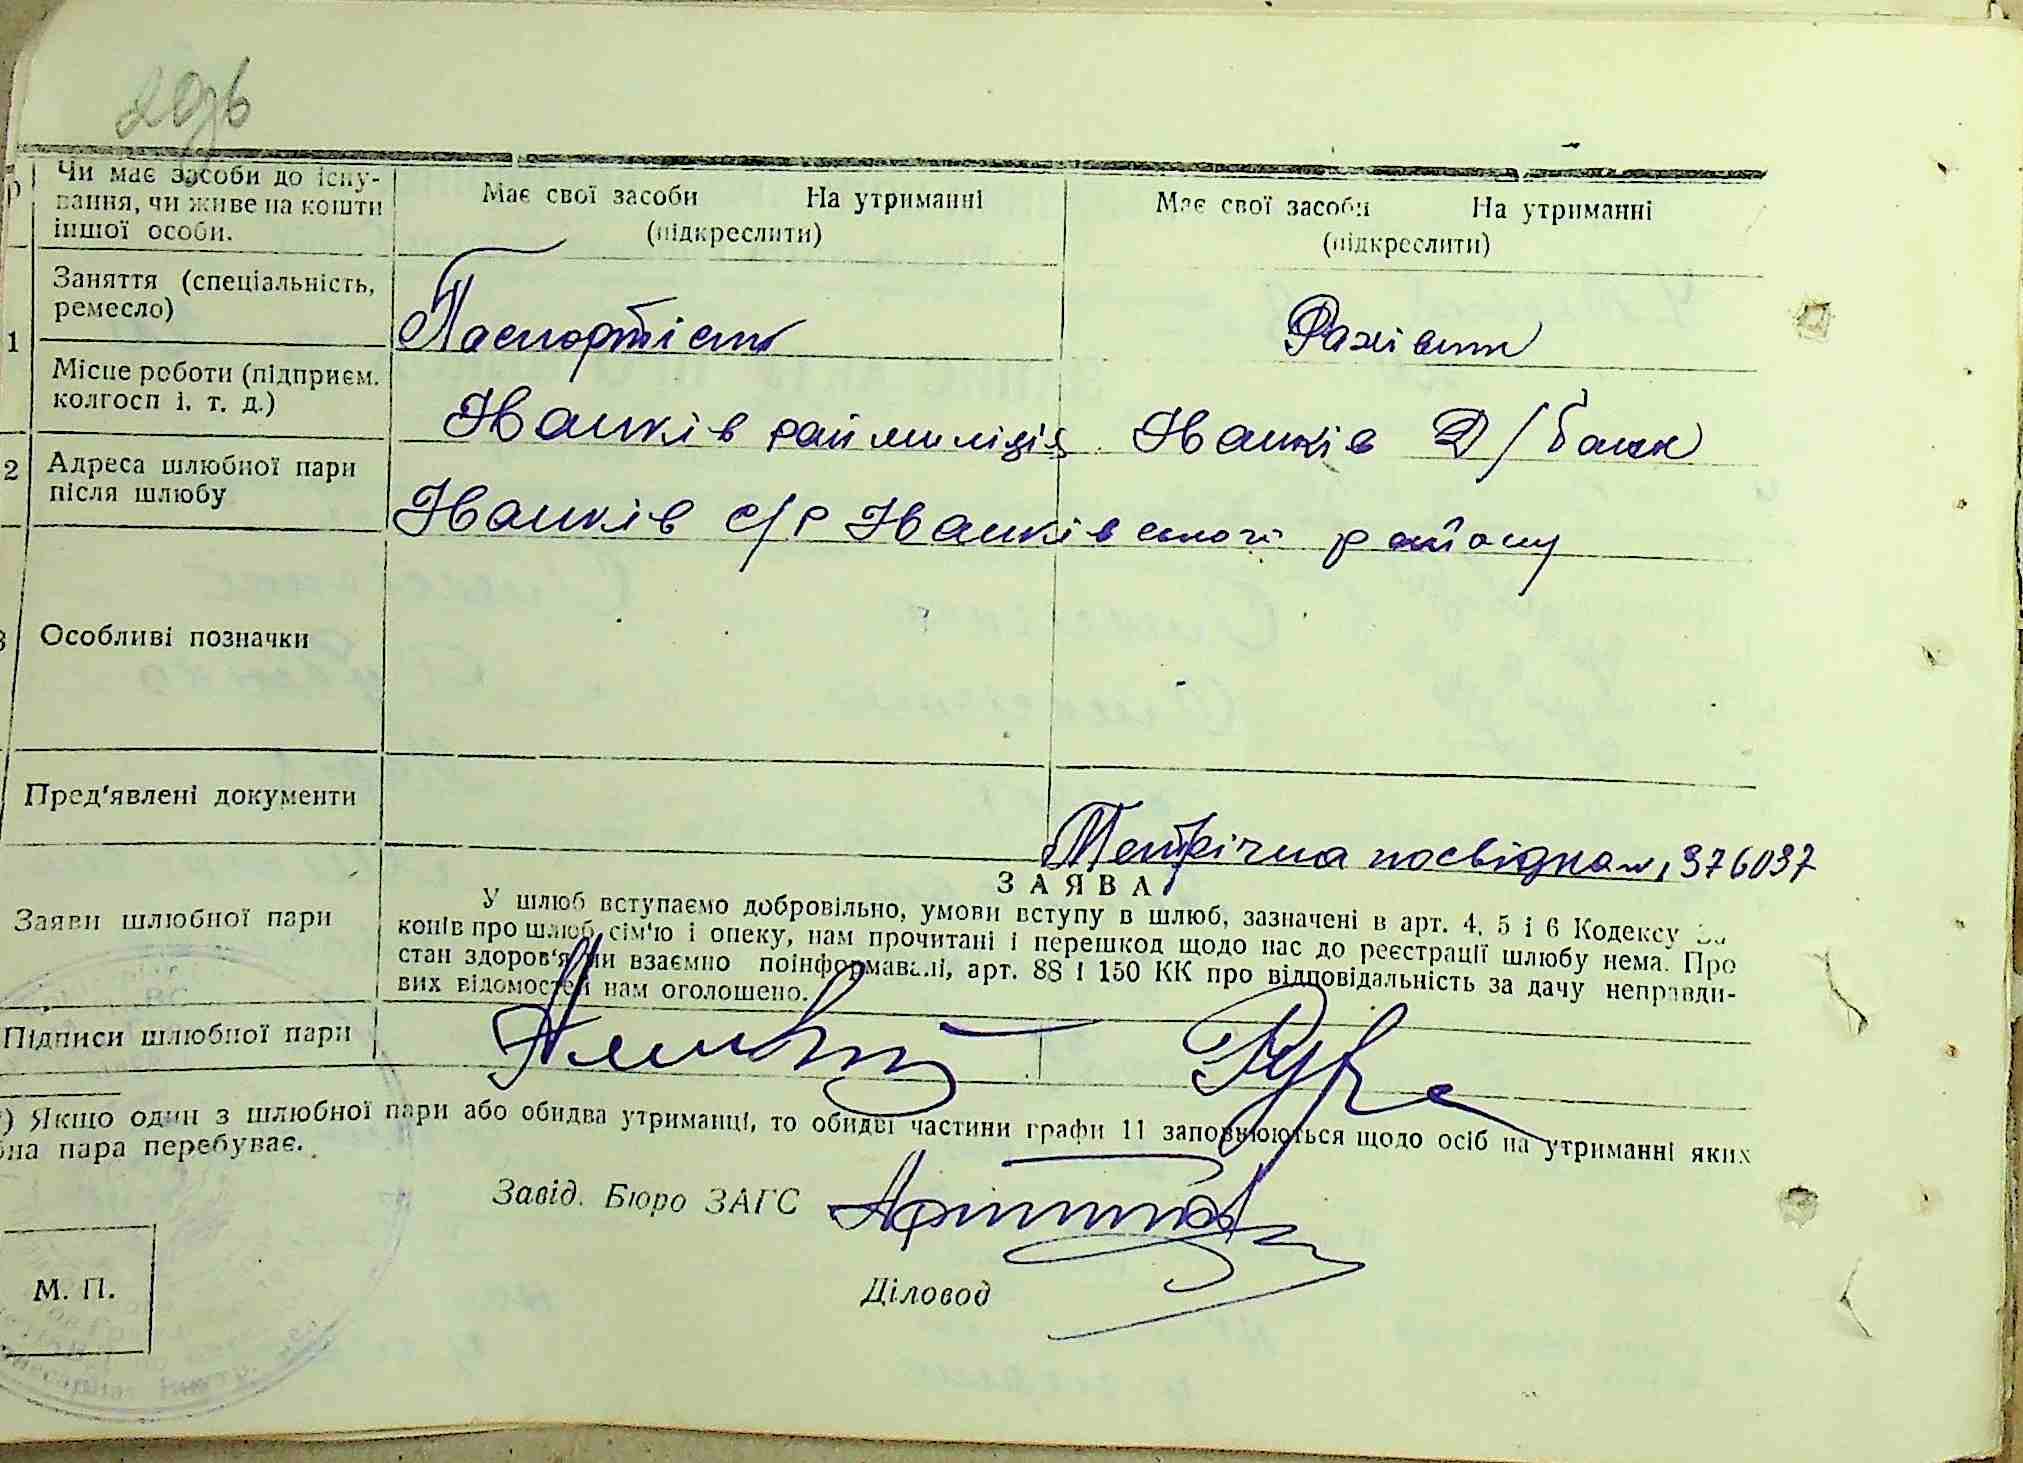 20зв
Чи має засоби до існу-
вання, чи живе на кошти
іншої особи.
Має свої засоби На утриманні
(підкреслити)
Має свої засоби На утриманні
(підкреслити)
1
Заняття (спеціальність,
ремесло)
Паспортіст
Рахівник
Місце роботи (підприєм.
колгосп і. т. д.)
Іванків райміліція
Іванків Д/банк
2
Адреса шлюбної пари
після шлюбу
Іванків с/р Іванківського району
3
Особливі позначки
Пред'явлені документи
Метрічна 376037
Заяви шлюбної пари
ЗАЯВА
У шлюб вступаємо добровільно, умови вступу в шлюб, зазначені в арт. 4, 5 і 6 Кодексу За
конів про шлюб, сім'ю і опеку, нам прочитані і перешкод щодо нас до реєстрації шлюбу нема. Про
стан здоров'я ми взаємно поінформавалі, арт. 88 і 150 КК про відповідальність за дачу неправди-
вих відомостей нам оголошено.
Підписи шлюбної пари
*) Якщо один з шлюбної пари або обидва утриманці, то обидві частини графи 11 заповнюються щодо осіб на утриманні яких
пара перебуває.
Завід. Бюро ЗАГС
М. П.
Діловод